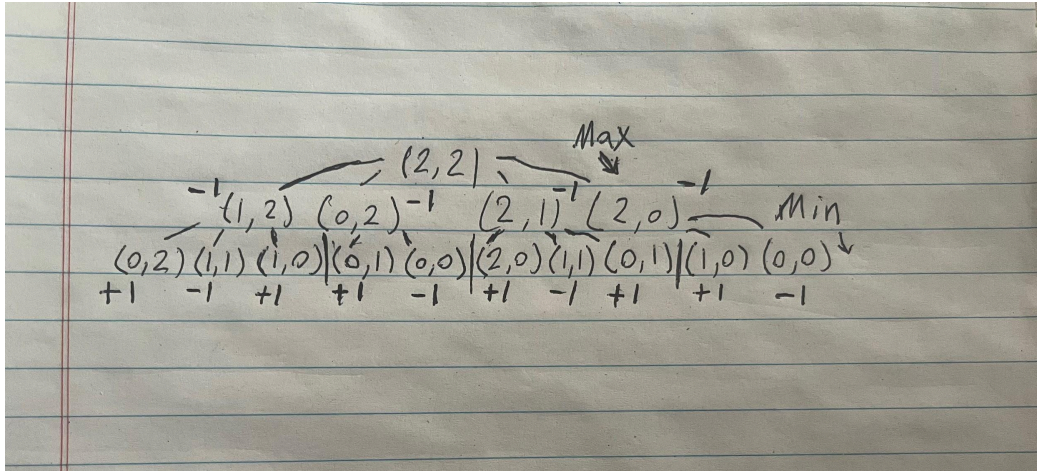 Max
(2,2)
-1 (1,2) (0,2) -1 (2,1) -1 (2,0) -1 Min
(0,2) (1,1) (1,0) | (0,1) (0,0) | (2,0) (1,1) (0,1) | (1,0) (0,0)
+1 -1 +1 +1 -1 +1 -1 +1 +1 -1